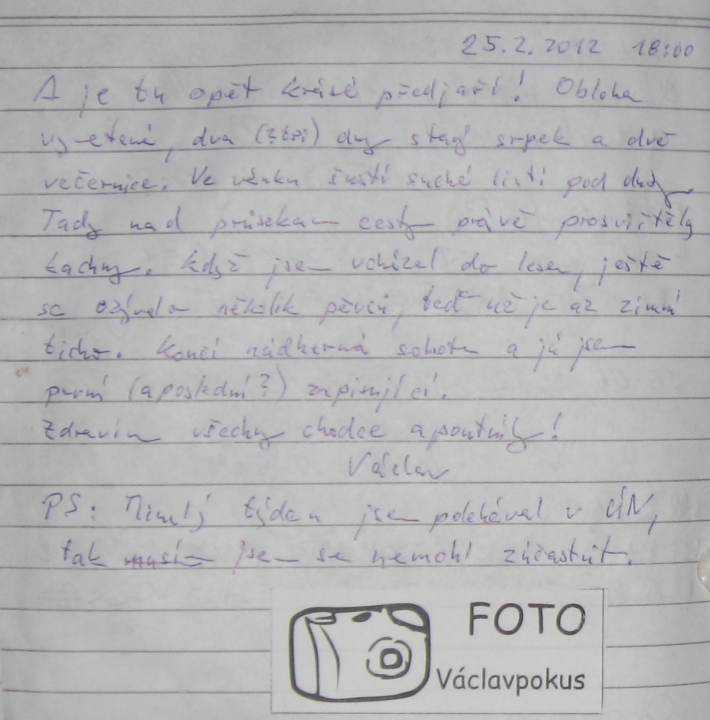 25.2.2012 18:00
A je tu opět krásné předjaří! Obloha
vymetená, dva (? tři) dny starý srpek a dvě
večernice. Ve vánku šustí suché listí pod duby
Tady nad průsekem cesty právě prosvištěly
kachny. Když jsem vcházel do lesa, ještě
se ozývalo několik pěvců, teď už je až zimní
ticho. Končí nádherná sobota a já jsem
první (a poslední?) zapisující.
Zdravím všechny chodce a poutníky!
Václav
PS: Minulý týden jsem poležával v ČÍN,
tak jsem se nemohl zúčastnit.
FOTO
Václavpokus